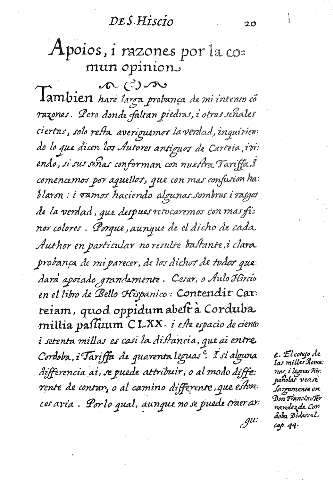 DE S. HISCIO 20
Apoios, i razones por la co-
mun opinion.
Tambien hare larga probança de mi intento cõ
razones. Pero donde faltan piedras, i otras señales
ciertas, solo resta averiguemos la verdad, inquirien-
do lo que dicen los Autores antiguos de Carteia, i vi-
endo, si sus señas conforman con nuestra Tariffa. I
comencemos por aquellos, que con mas confusion ha-
blaron: i vamos haciendo algunas sombras i rasgos
de la verdad, que despues retocaremos con mas fi-
nos colores. Porque, aunque de el dicho de cada
Author en particular no resulte bastante, i clara
probança de mi parecer, de los dichos de todos que
dará apoiado grandemente. Cesar, o Aulo Hircio
en el libro de Bello Hispanico: Contendit Car-
teiam, quod oppidum abest à Corduba
millia passuum CLXX. i este espacio de ciento
i setenta millas es casi la distancia, que ai entre
Cordoba, i Tariffa de quarenta leguas e. I si alguna
differencia ai, se puede attribuir, o al modo diffe-
rente de contar, o al camino differente, que eston-
ces avia. Por lo qual, aunque no se puede traer ar-
gu-
e. El computo de
las millas Roma-
nas, i leguas His-
pañolas vease
largamente en
Don Francisco Fer-
nandez de Cor-
doba Didascal.
cap. 44.